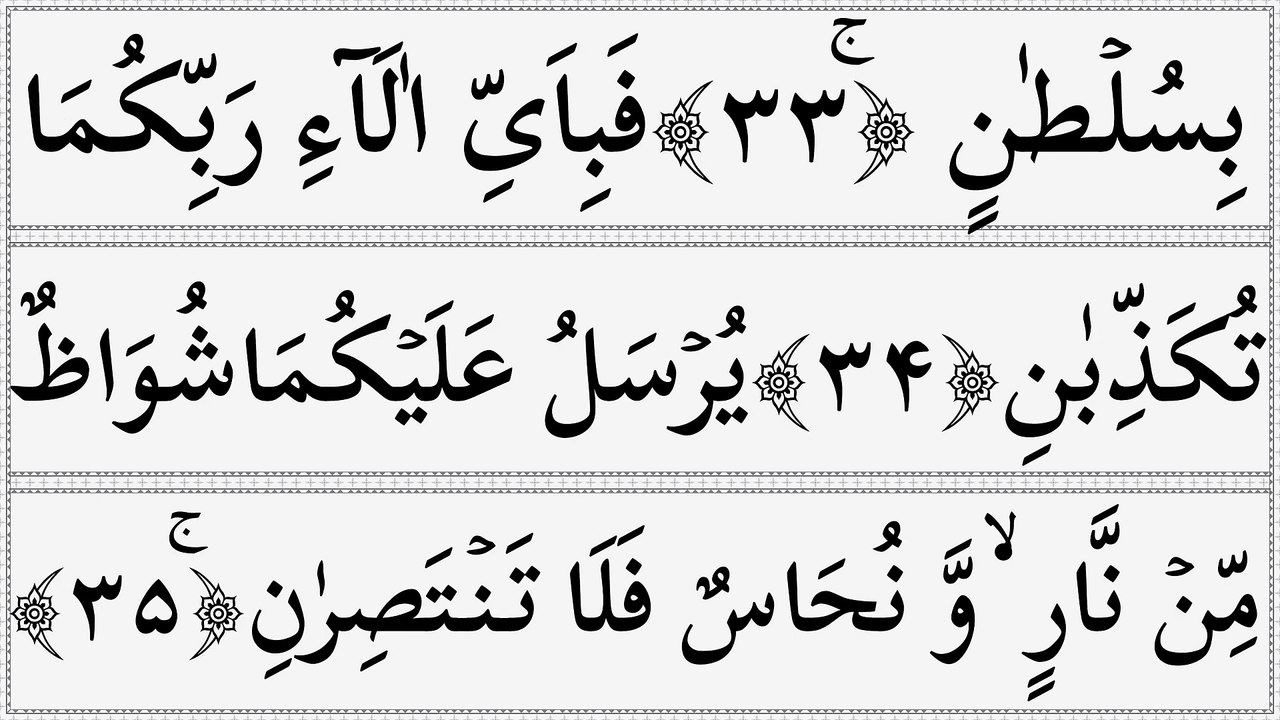 بِسُلۡطٰنٍ ﴿ۚ۳۳﴾ فَبِاَیِّ اٰلَآءِ رَبِّکُمَا
تُکَذِّبٰنِ ﴿۳۴﴾ یُرۡسَلُ عَلَیۡکُمَا شُوَاظٌ
مِّنۡ نَّارٍ ۬ۙ وَّ نُحَاسٌ فَلَا تَنۡتَصِرٰنِ ﴿ۚ۳۵﴾